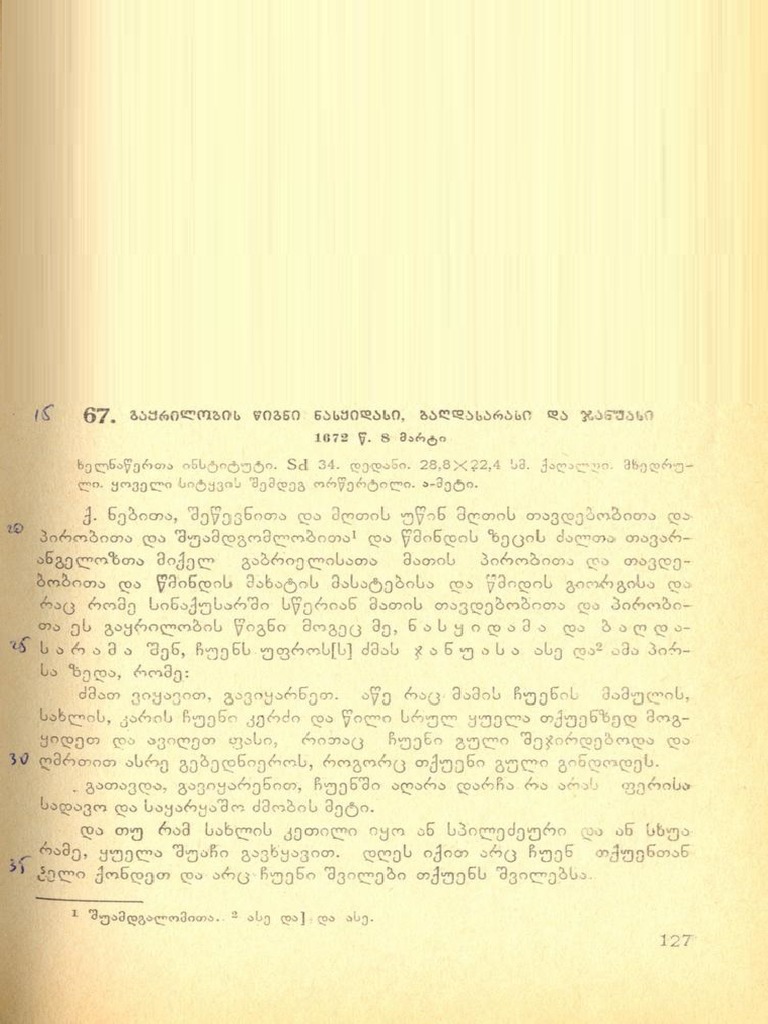 15 67. გაყრილობის წიგნი ნასყიდასი, ბაღდასარასი და ჯანუასი
1672 წ. 8 მარტი
ხელნაწერთა ინსტიტუტი. Sd 34. დედანი. 28,8×22,4 სმ. ქაღალდი. მხედრუ-
ლი. ყოველი სიტყვის შემდეგ ორწერტილი. ა-მეტი.
ქ. ნებითა, შეწევნითა და მღთის უწინ მღთის თავდებობითა და
20 პირობითა და შუამდგომლობითა¹ და წმინდის ზეცის ძალთა თავარ-
ანგელოზთა მიქელ გაბრიელისათა მათის პირობითა და თავდე-
ბობითა და წმინდის მახატის მასატებისა და წმიდის გიორგისა და
რაც რომე სინაქუსარში სწერიან მათის თავდებობითა და პირობი-
თა ეს გაყრილობის წიგნი მოგეც მე, ნასყიდამა და ბაღდა-
25 სარამა შენ, ჩუენს უფროს[ს] ძმას ჯანუასა ასე და² ამა პირ-
სა ზედა, რომე:
ძმათ ვიყავით, გავიყარნეთ. აწე რაც მამის ჩუენის მამულის,
სახლის, კარის ჩუენი კერძი და წილი სრულ ყუელა თქუენზედ მოგ-
ყიდეთ და ავიღეთ ფასი, რითაც ჩუენი გული შეჯირდებოდა და
30 ღმრთით ასრე გებედნიეროს, როგორც თქუენი გული გინდოდეს.
გათავდა, გავიყარენით, ჩუენში აღარა დარჩა რა არას ფერისა
სადავო და საყარყაშო ძმობის მეტი.
და თუ რამ სახლის კეთილი იყო ან სპილეძეური და ან სხუა
რამე, ყუელა შუაჩი გავხყავით. დღეს იქით არც ჩუენ თქუენთან
35 ჴელი ქონდეთ და არც ჩუენი შვილები თქუენს შვილებსა.
¹ შუამდგალომითა. ² ასე და] და ასე.
127